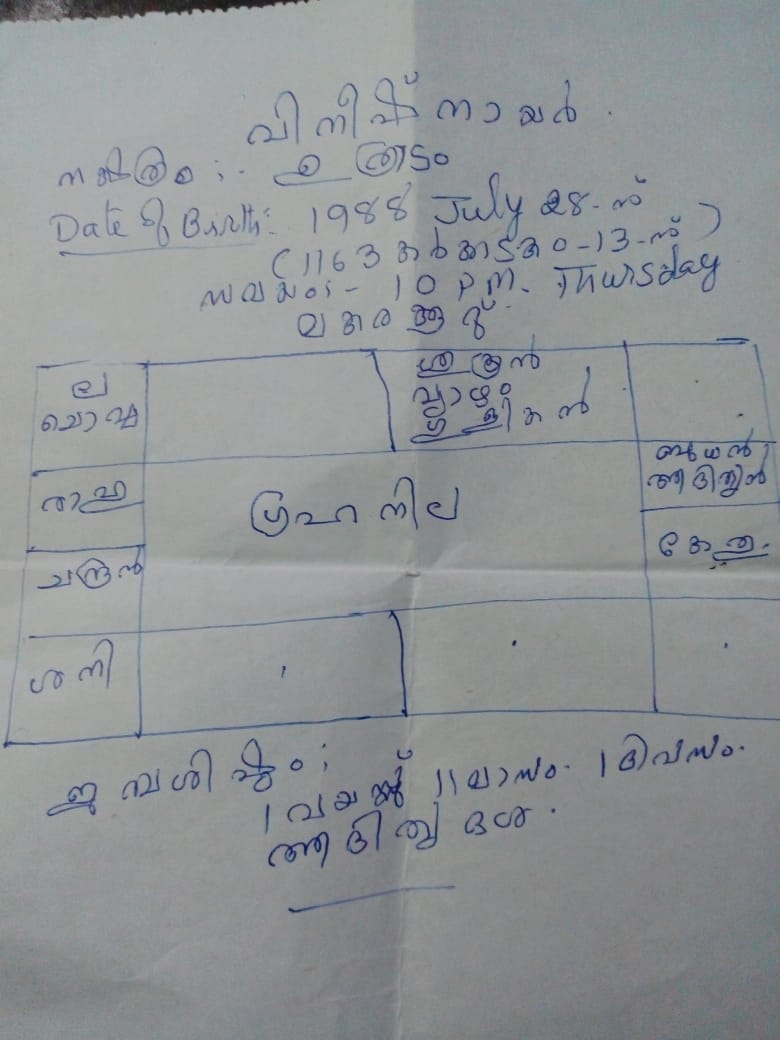 വിനീഷ് നായർ.
നക്ഷത്രം :- ഉത്രാടം
Date of Birth: 1988 July 28-ന്
(1163 കർക്കടകം-13-ന്)
സമയം:- 10 P.M. Thursday
മകരക്കൂറ്
ല
ചൊവ്വ
ശുക്രൻ
വ്യാഴം
ഗുളികൻ
രാഹു
ഗ്രഹനില
ബുധൻ
ആദിത്യൻ
കേതു.
ചന്ദ്രൻ
ശനി
ജന്മശിഷ്ടം:
1 വയസ്സ് 11 മാസം. 1 ദിവസം.
ആദിത്യ ദശ.